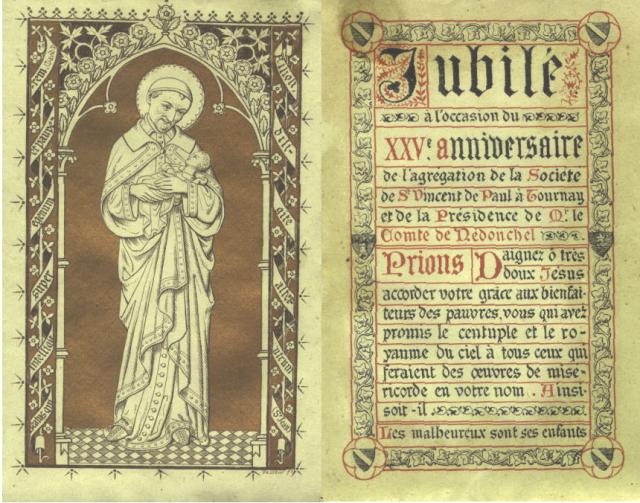 Jubilé
à l'occasion du
XXVe. anniversaire
de l'agrégation de la Société
de St Vincent de Paul à Tournay
et de la Présidence de Mr. le
Comte de Nedonchel
Prions Daignez ô très
doux Jésus
accorder votre grâce aux bienfai-
teurs des pauvres, vous qui avez
promis le centuple et le ro-
yaume du ciel à tous ceux qui
feraient des œuvres de misé-
ricorde en votre nom. Ainsi-
soit-il
Les malheureux sont ses enfants